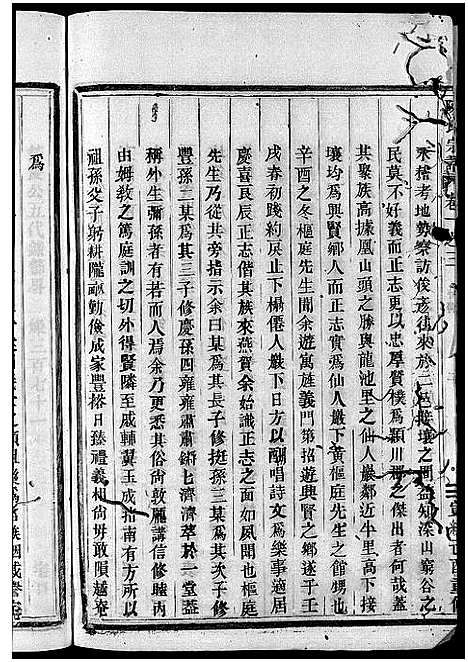 承稽考地勢察訪俟彥往來於三邑壁壤之間益知深山窮谷之
民莫不好義而正志更以忠厚質樸爲潁川郡之傑出者何哉蓋
其聚族高據鳳山頭之勝與龍池里之仙人巖鄰近牛里高下接
壤均爲興賢鄉人而正志實爲仙人巖下黃樞庭先生之館甥也
辛酉之冬樞庭先生聞余遊寓旌義門第招遊興賢之鄉遂于壬
戌春初踐約戾止下榻僊人巖下日方以酬唱詩文爲樂事適居
慶喜良辰正志偕其族來燕賀余始識正志之面如夙聞也樞庭
先生乃從其旁指示余曰某爲其長子修挺孫三某爲其次子修
豐孫三某爲其三子修慶孫四雍雍肅肅鏘鏘濟濟萃於一堂蓋
稱外生彌孫者有若而人焉余乃更悉其俗尚敦龐講信修睦內
由姆敎之篤庭訓之切外得賢隣至戚輔翼玉成指南有方所以
祖孫父子躬耕隴畝勤儉成家豐搭日臻禮義相尚毋敢隕越竊
爲